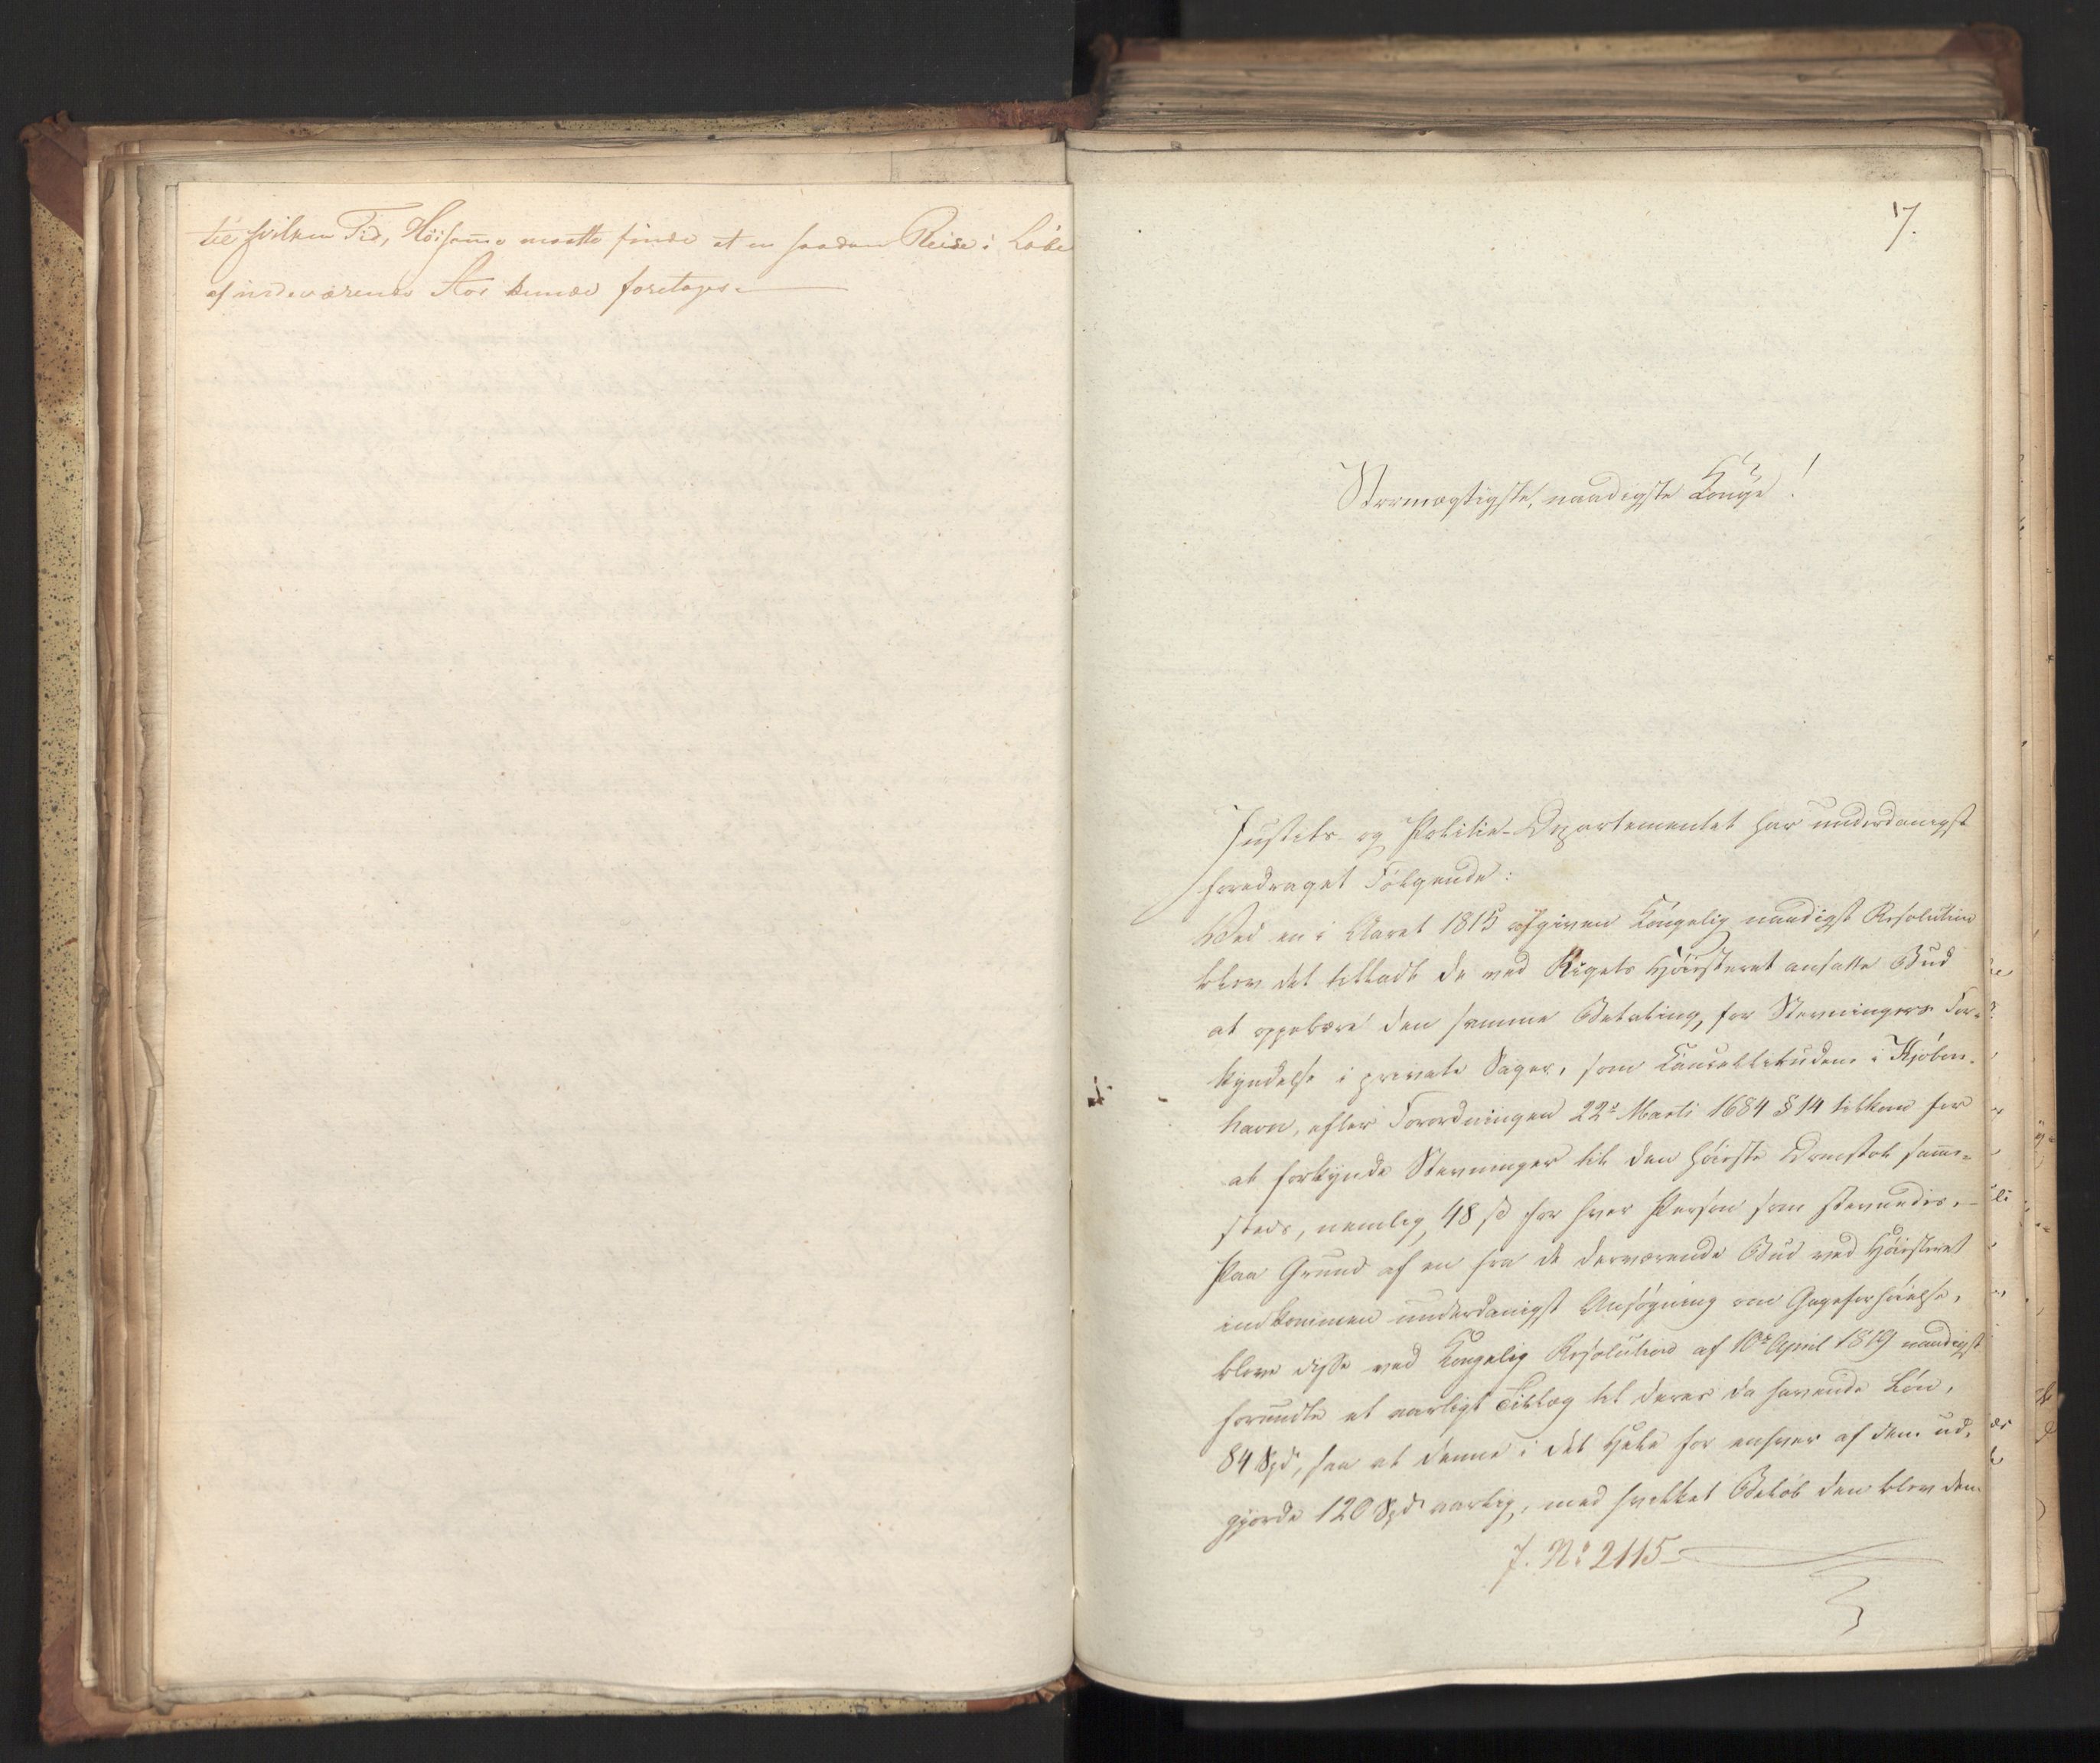 til hvilken Tid, Høisamme maatte finde at en saadan Reise i Løbet
af indeværende Aar kunde foretages.
7.
Stormægtigste, naadigste Konge!
Justits- og Politie-Departementet har underdanigst
foredraget Følgende:
Ved en i Aaret 1815 afgiven Kongelig naadigst Resolution
blev det tilladt de ved Rigets Høiesteret ansatte Bud
at oppebære den samme Betaling, for Stevningers For-
kyndelse i private Sager, som Cancellibudene i Kjøben-
havn, efter Forordningen 22de Marti 1684 § 14 tilkom for
at forkynde Stevninger til den høieste Domstol samme-
steds, nemlig, 48 s for hver Person som stevnedes. -
Paa Grund af en fra de derværende Bud ved Høiesteret
indkommen underdanigst Ansøgning om Gageforhøielse,
bleve disse ved Kongelig Resolution af 10de April 1819 naadigst
forundte et aarligt Tillæg til deres da havende Løn,
84 Spd, saa at denne i det Hele for enhver af dem ud-
gjorde 120 Spd aarlig, med hvilket Beløb den blev dem
J. No 2115